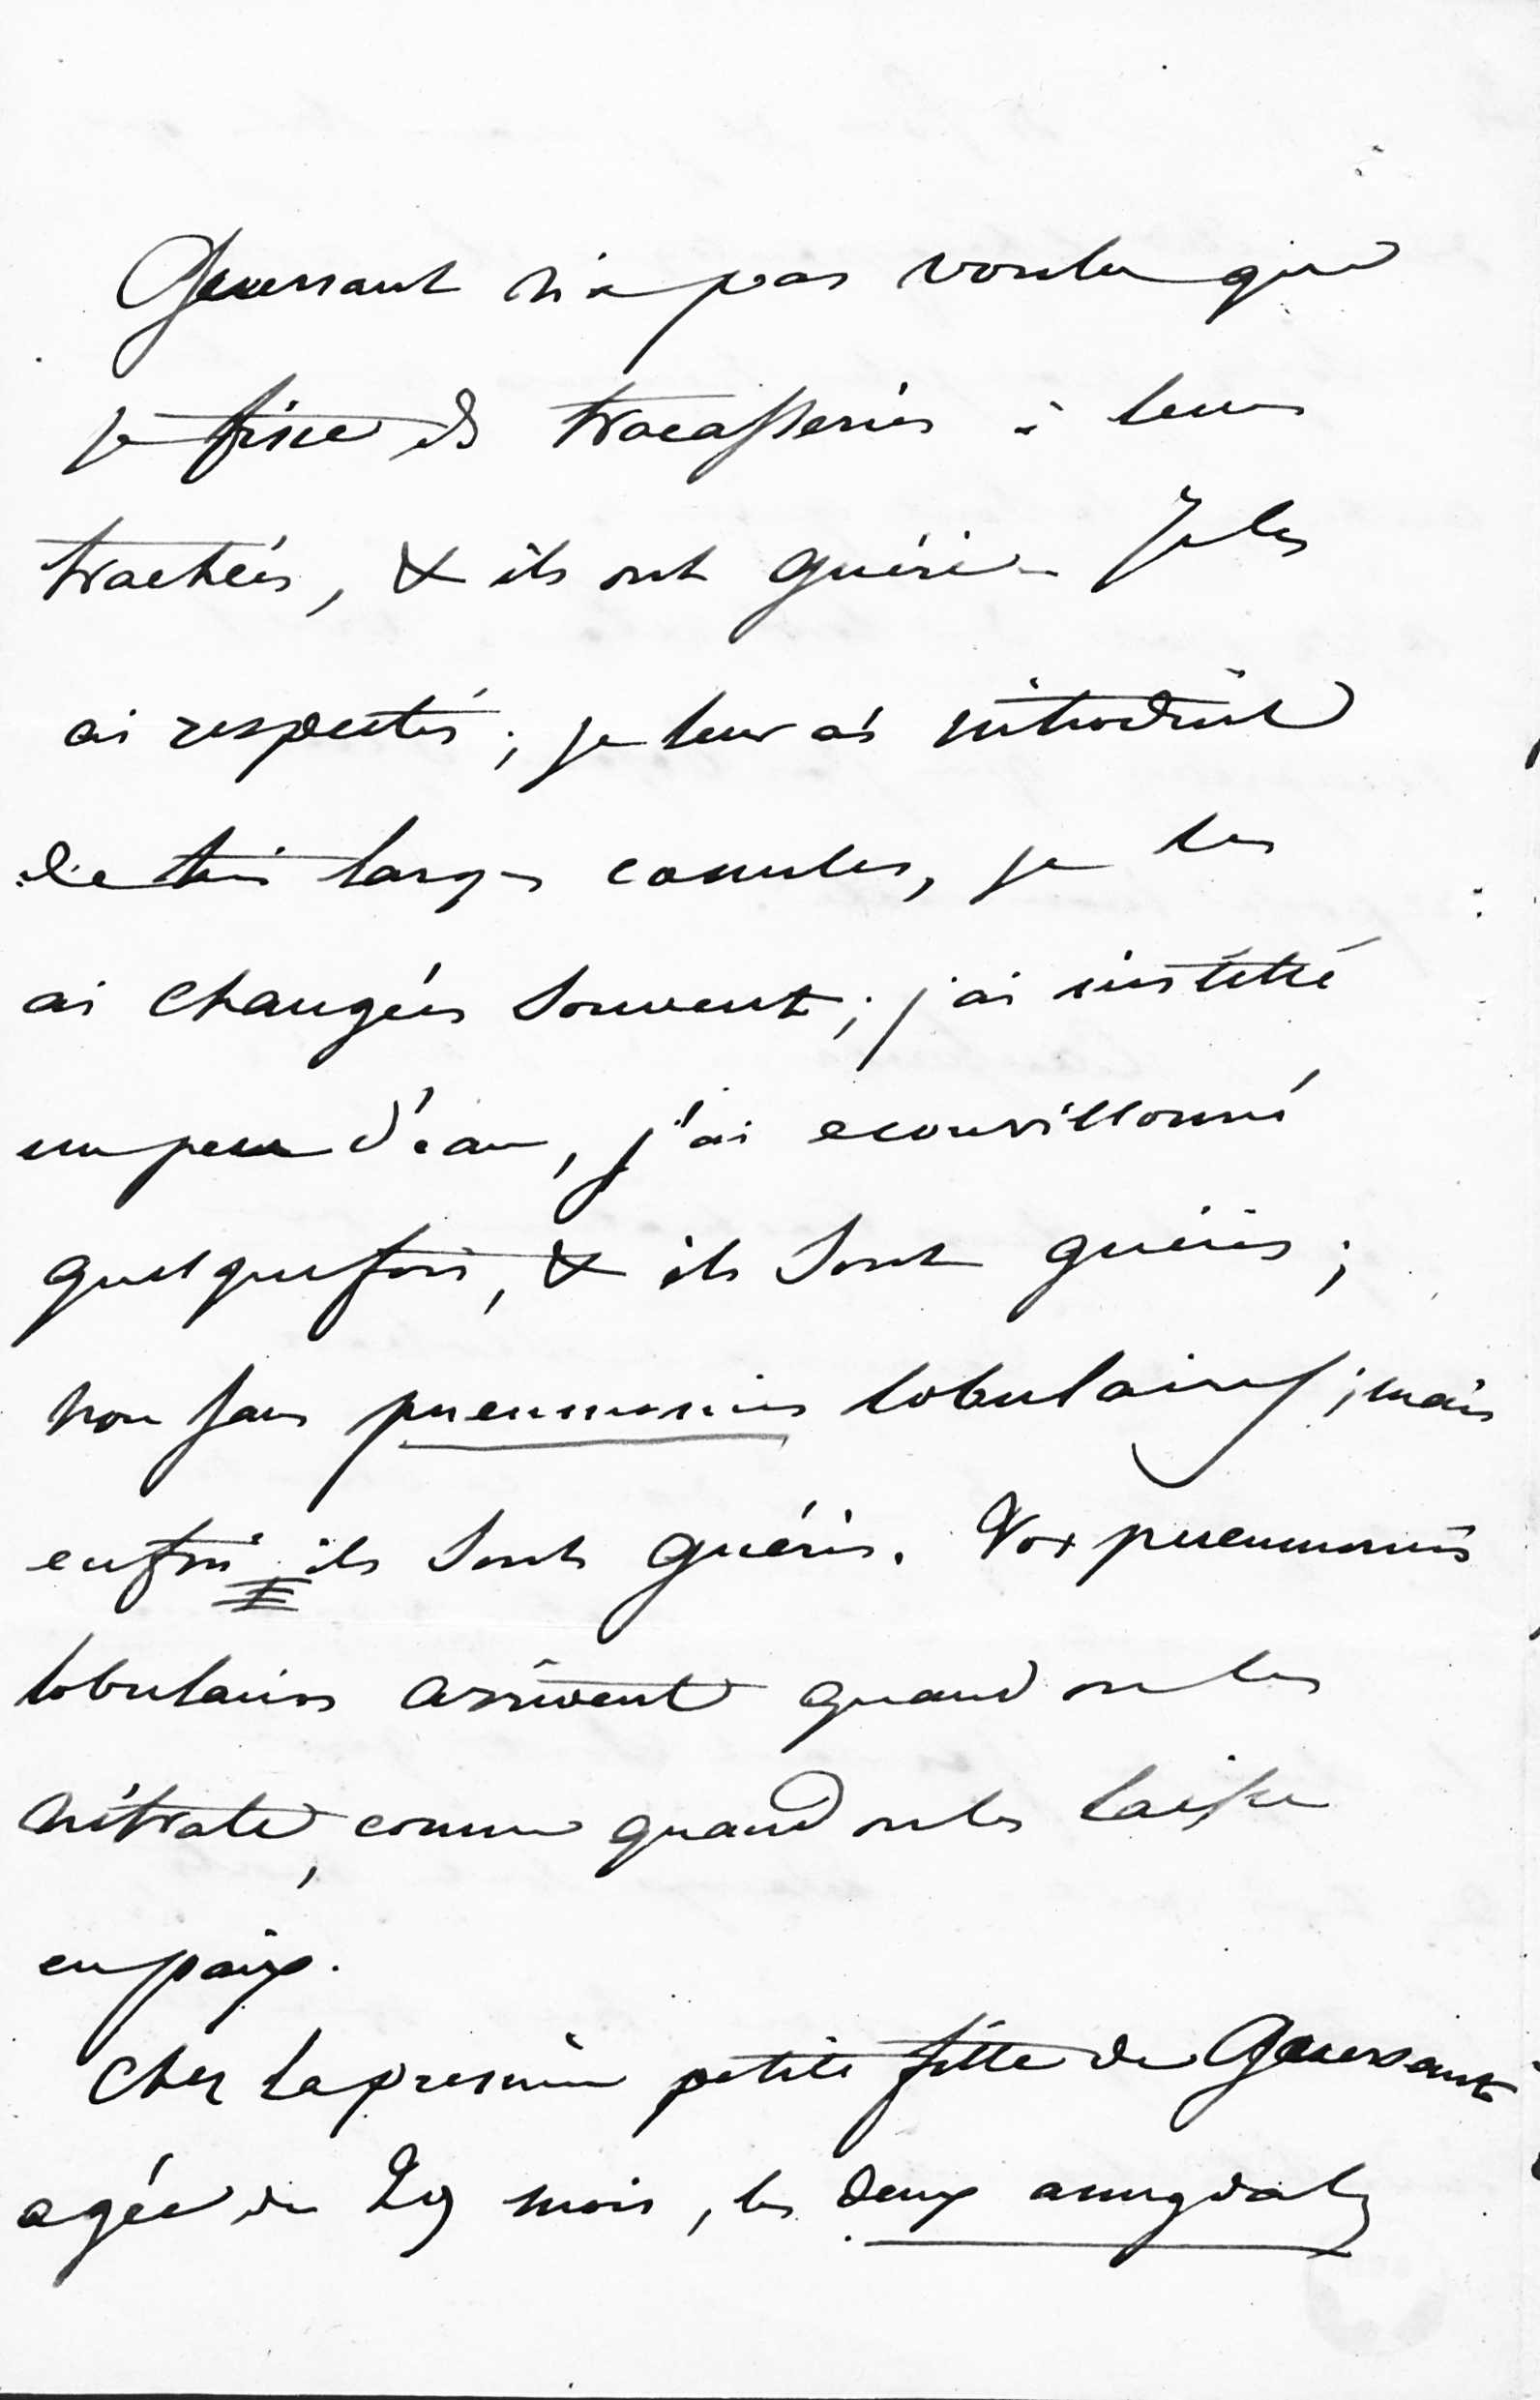 Guersant n'a pas voulu que
je fisse des tracasseries à leurs
trachées, & ils ont guéri – Je les
ai respectés ; je leur ai introduit
de très larges canules, je les
ai changées souvent ; j'ai instillé
un peu d'eau, j'ai ecouvillonné
quelquefois, & ils sont guéris ;
non sans pneumonies lobulaires ; mais
enfin ils sont guéris. Vos pneumonies
lobulaires arrivent quand on les
nitrate, comme quand on les laisse
en paix.
Chez la première petite fille de Guersant
agée de 29 mois, les deux amygdales